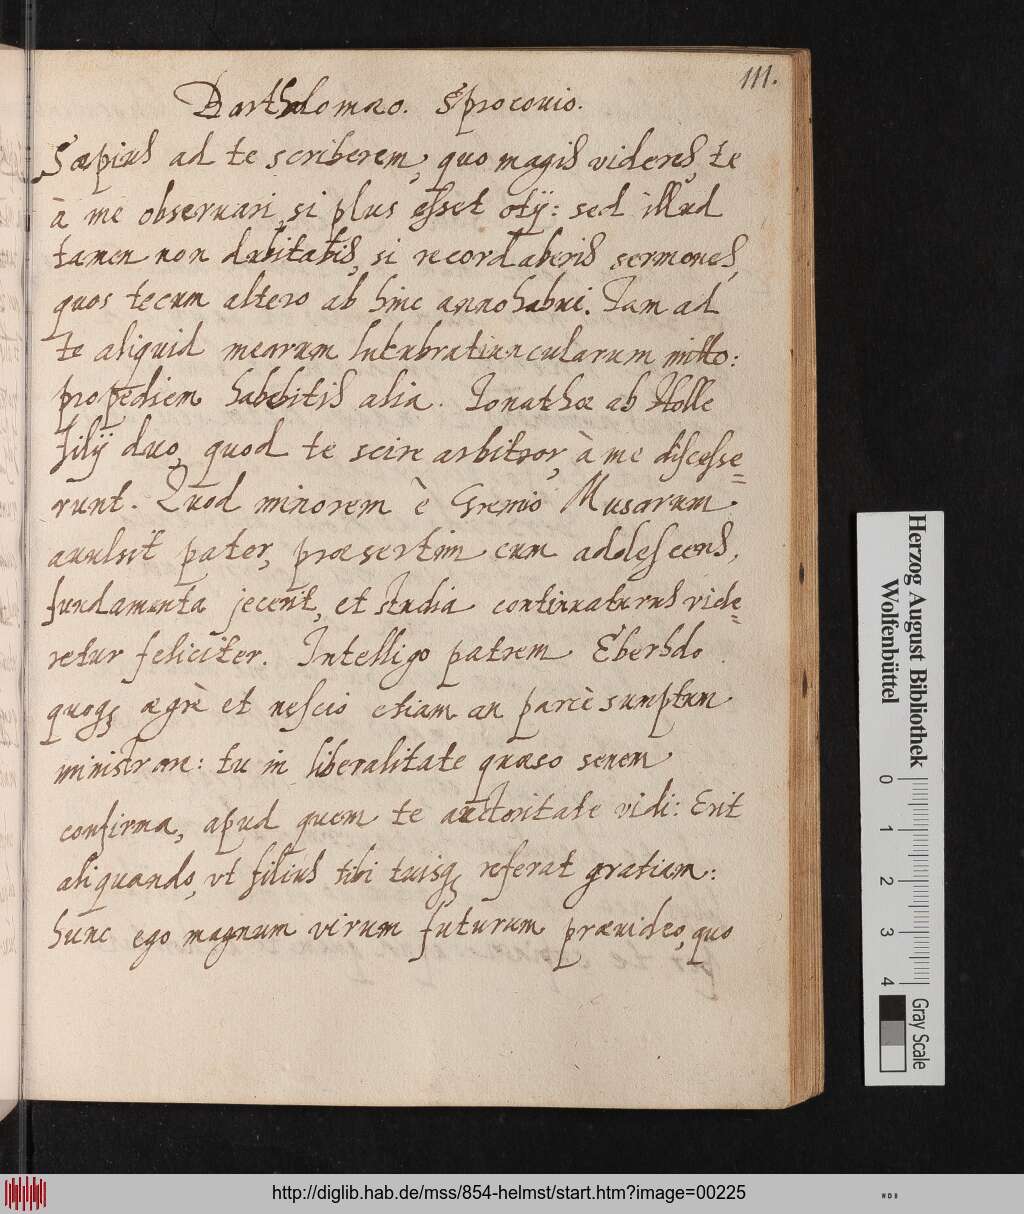 111.
Bartholomæo. Sprocouio.
Sæpius ad te scriberem, quo magis videres, te
à me obseruari, si plus esset otij: sed illud
tamen non dubitabis, si recordaberis sermones,
quos tecum altero ab hinc anno habui. Iam ad
te aliquid mearum lucubratiuncularum mitto:
propediem habebitis alia. Ionathæ ab Holle
filij duo, quod te scire arbitror, à me discesse=
runt. Quod minorem è Gremio Musarum
auulsit pater, præsertim cum adolescens,
fundamenta jecerit, et studia continuaturus vide=
retur feliciter. Intelligo patrem Eberhdo
quoq; ægrè et nescio etiam an parcè sumptum
ministrare: tu in liberalitate quæso senem
confirma, apud quem te auctoritate vidi: Erit
aliquando, vt filius tibi tuisq; referat gratiam:
hunc ego magnum virum futurum præuideo, quo
Herzog August Bibliothek
Wolfenbüttel
0 1 2 3 4
Gray Scale
http://diglib.hab.de/mss/854-helmst/start.htm?image=00225